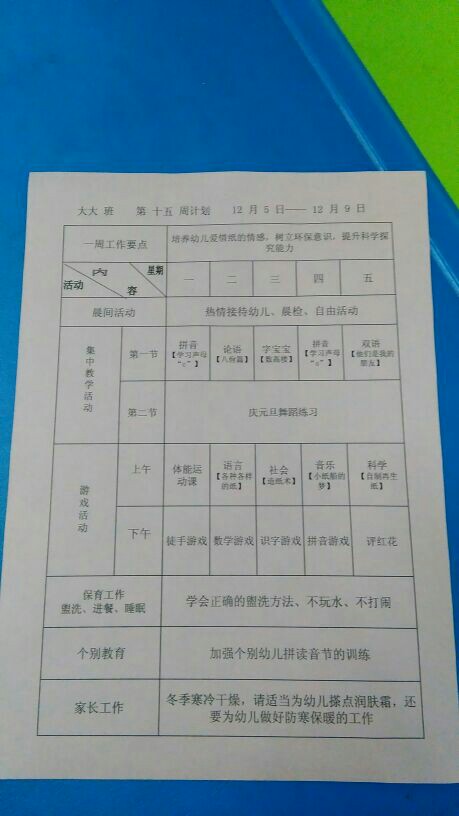 大大 班 第 十五 周计划 12 月 5 日—— 12 月 9 日
一周工作要点
培养幼儿爱惜纸的情感，树立环保意识，提升科学探
究能力
内 星期
活动 容
一 二 三 四 五
晨间活动
热情接待幼儿、晨检、自由活动
集中教学活动
第一节
拼音
【学习声母
“c”】
论语
【八佾篇】
字宝宝
【数高楼】
拼音
【学习声母
“s”】
双语
【他们是我的
朋友】
第二节
庆元旦舞蹈练习
游戏活动
上午
体能运
动课
语言
【各种各样
的纸】
社会
【造纸术】
音乐
【小纸船的
梦】
科学
【自制再生
纸】
下午
徒手游戏 数学游戏 识字游戏 拼音游戏 评红花
保育工作
盥洗、进餐、睡眠
学会正确的盥洗方法、不玩水、不打闹
个别教育
加强个别幼儿拼读音节的训练
家长工作
冬季寒冷干燥，请适当为幼儿搽点润肤霜，还
要为幼儿做好防寒保暖的工作